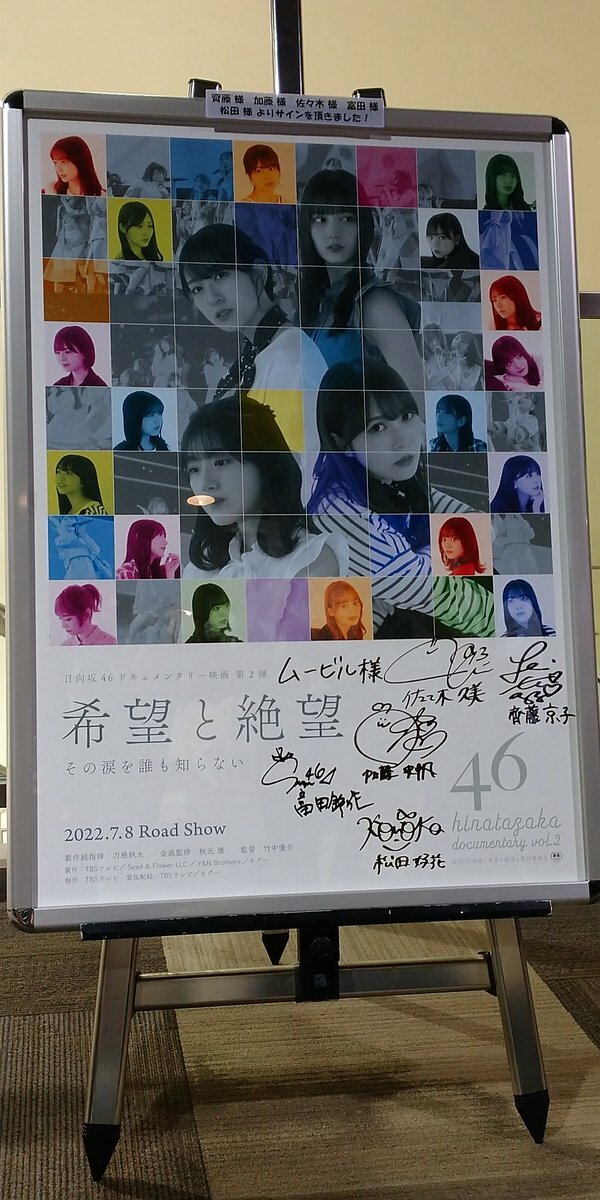 齊藤 様　加藤 様　佐々木 様　富田 様
松田 様 よりサインを頂きました！
日向坂46ドキュメンタリー映画 第2弾
希望と絶望
その涙を誰も知らない
ムービル様
佐々木 久美
齊藤 京子
加藤 史帆
富田 鈴花
松田 好花
46
hinatazaka
documentary vol.2
2022.7.8 Road Show
製作総指揮：刀根鉄太　企画監修：秋元 康　監督：竹中優介
製作：TBSテレビ／Seed & Flower LLC／Y&N Brothers／ギグー
制作：TBSテレビ　宣伝配給：TBSテレビ／ギグー
©2022映画「希望と絶望」製作委員会